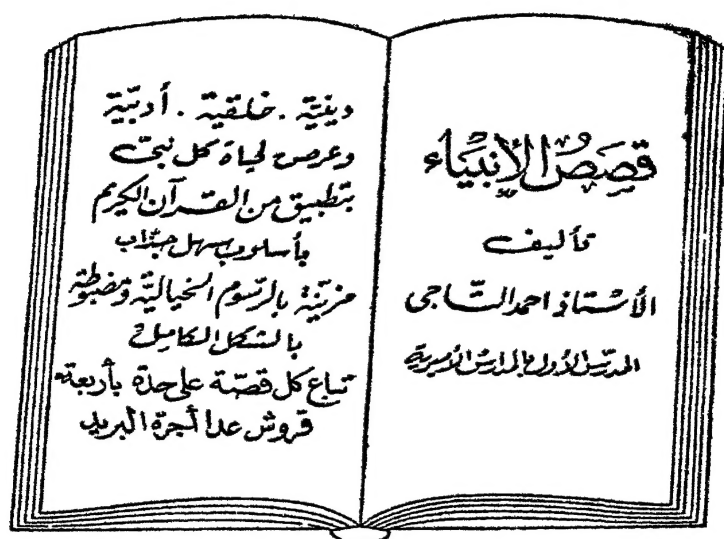 قصَصُ الأنبيَاء
تأليف
الأستاذ احمد التّاجى
المدرّس الأول بالمدارس الأميرية
دينيّة . خلقية . أدبيّة
وعرض لحياة كل نبىّ
بتطبيق من القرآن الكريم
بأسلوب سهل جذّاب
مزيّنة بالرّسوم الخياليّة ومضبوطة
بالشكل الكامل
تباع كل قصّة على حدة بأربعة
قروش عدا أجرة البريد